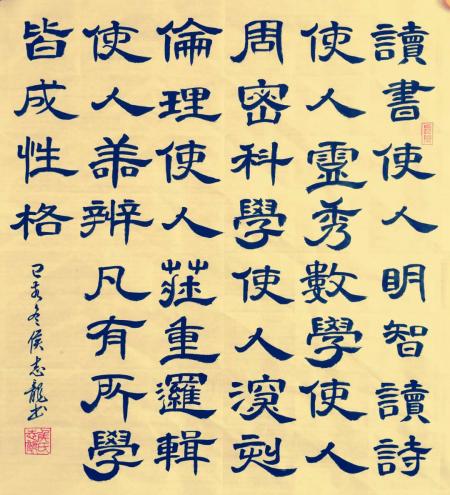 讀書使人明智讀詩
使人靈秀數學使人
周密科學使人深刻
倫理使人莊重邏輯
使人善辨凡有所學
皆成性格
己亥冬侯志龍书